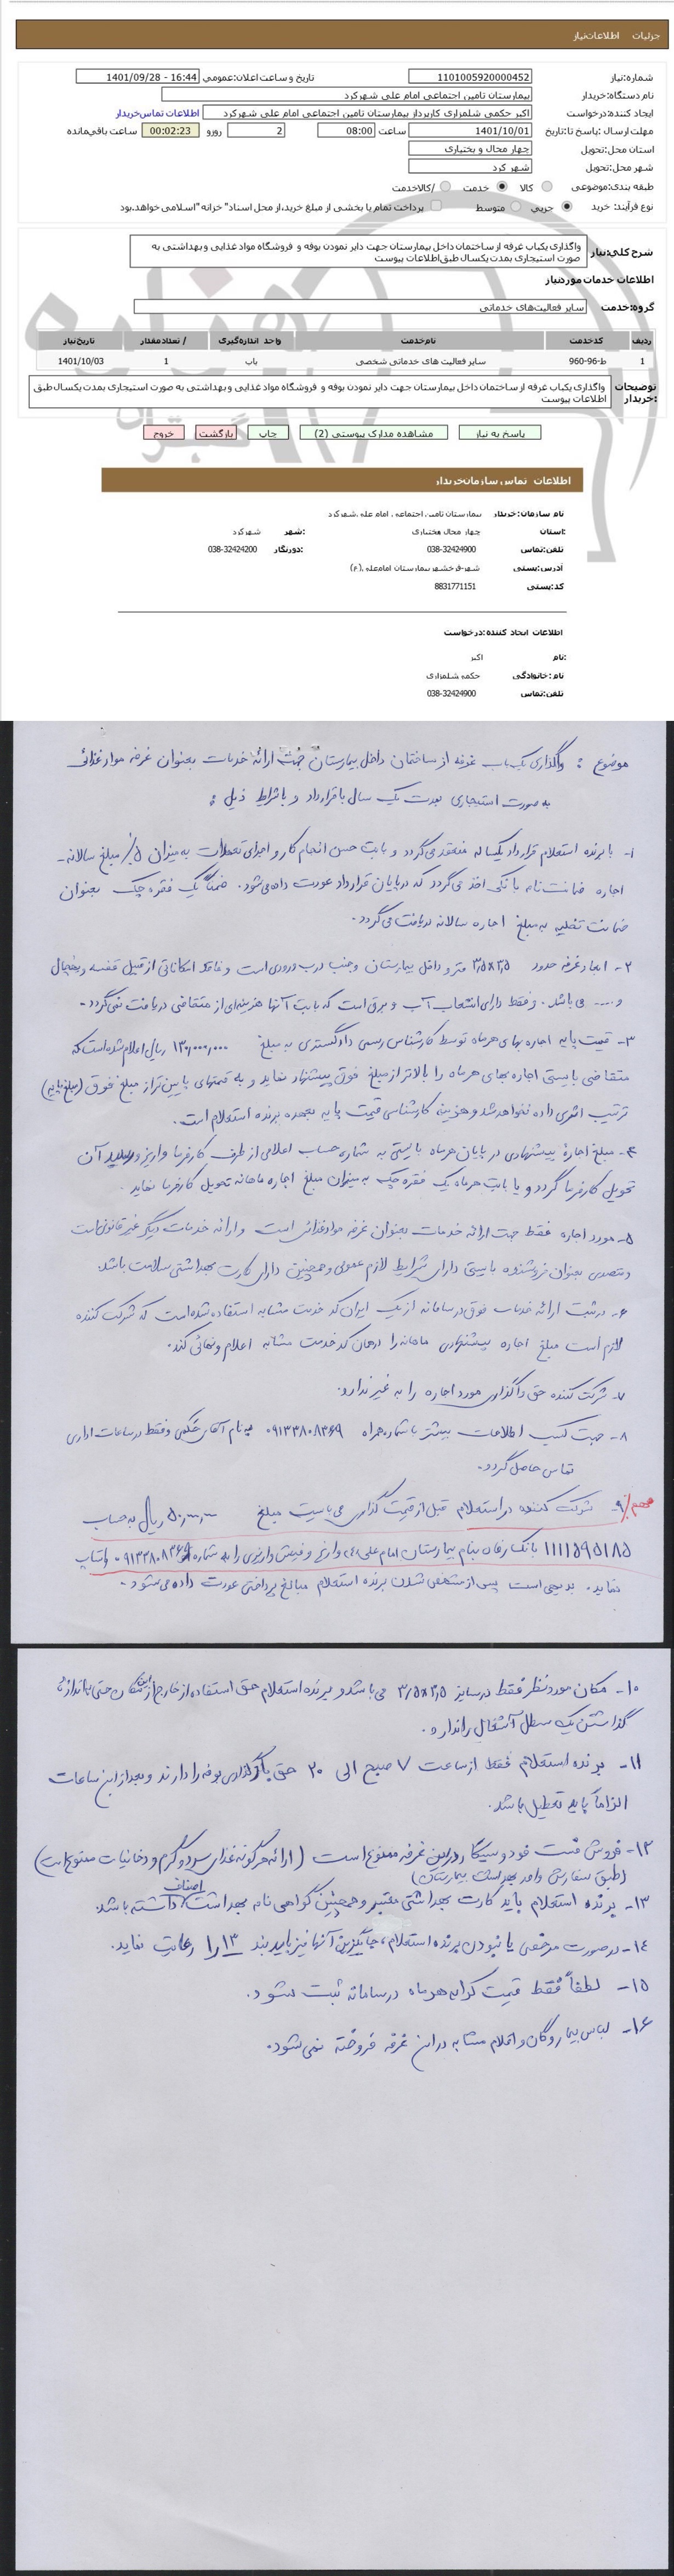 جزئیات اطلاعات نیاز
شماره نیاز: 1101005920000452
تاریخ و ساعت اعلان عمومی: 16:44 - 1401/09/28
نام دستگاه خریدار: بیمارستان تامین اجتماعی امام علی شهرکرد
ایجاد کننده درخواست: اکبر حکمی شلمزاری کاربرداز بیمارستان تامین اجتماعی امام علی شهرکرد اطلاعات تماس خریدار
مهلت ارسال پاسخ تا: تاریخ 1401/10/01 ساعت 08:00 2 روز و 00:02:23 ساعت باقی مانده
استان محل تحویل: چهار محال و بختیاری
شهر محل تحویل: شهر کرد
طبقه بندی موضوعی: کالا خدمت کالا/خدمت
نوع فرآیند خرید: جزیی متوسط پرداخت تمام یا بخشی از مبلغ خرید،از محل اسناد "خزانه اسلامی" خواهد بود.
شرح کلی نیاز: واگذاری یکباب غرفه از ساختمان داخل بیمارستان جهت دایر نمودن بوفه و فروشگاه مواد غذایی و بهداشتی به
صورت استیجاری بمدت یکسال طبق اطلاعات پیوست
اطلاعات خدمات مورد نیاز
گروه خدمت: سایر فعالیت‌های خدماتی
ردیف کد خدمت نام خدمت واحد اندازه گیری تعداد / مقدار تاریخ نیاز
1 ط-96-960 سایر فعالیت های خدماتی شخصی باب 1 1401/10/03
توضیحات خریدار: واگذاری یکباب غرفه از ساختمان داخل بیمارستان جهت دایر نمودن بوفه و فروشگاه مواد غذایی و بهداشتی به صورت استیجاری بمدت یکسال طبق
اطلاعات پیوست
پاسخ به نیاز مشاهده مدارک پیوستی (2) چاپ بازگشت خروج
اطلاعات تماس سازمان خریدار
نام سازمان خریدار: بیمارستان تامین اجتماعی امام علی شهرکرد
استان: چهار محال و بختیاری شهر: شهرکرد
تلفن تماس: 038-32424900 دورنگار: 038-32424200
آدرس پستی: شهر-فرخشهر بیمارستان امام علی (ع)
کد پستی: 8831771151
اطلاعات ایجاد کننده درخواست:
نام: اکبر
نام خانوادگی: حکمی شلمزاری
تلفن تماس: 038-32424900
موضوع : واگذاری یکباب غرفه از ساختمان داخل بیمارستان جهت ارائه خدمات بعنوان غرفه مواد غذائی
به صورت استیجاری بمدت یک سال با قرارداد و با شرایط ذیل :
۱- با برنده استعلام قرارداد یکساله منعقد می‌گردد و بابت حسن انجام کار و اجرای تعهدات به میزان ۵٪ مبلغ سالانه
اجاره ضمانت نامه بانکی اخذ می‌گردد که در پایان قرارداد عودت داده می‌شود. ضمناً یک فقره چک بعنوان
ضمانت تخلیه به مبلغ اجاره سالانه دریافت می‌گردد.
۲- ابعاد غرفه حدود ۳/۵×۳/۵ متر و داخل بیمارستان و جنب درب ورودی است و فاقد امکاناتی از قبیل قفسه و یخچال
و .... می باشد. و فقط دارای انشعاب آب و برق است که بابت آنها هزینه‌ای از متقاضی دریافت نمی‌گردد.
۳- قیمت پایه اجاره بهای هر ماه توسط کارشناس رسمی دادگستری به مبلغ ۱۳۰,۰۰۰,۰۰۰ ریال اعلام شده است که
متقاضی بایستی اجاره بهای هر ماه را بالاتر از مبلغ فوق پیشنهاد نماید و به قیمتهای پایین تر از مبلغ فوق (مبلغ پایه)
ترتیب اثری داده نخواهد شد و هزینه کارشناسی قیمت پایه بعهده برنده استعلام است.
۴- مبلغ اجاره پیشنهادی در پایان هر ماه بایستی به شماره حساب اعلامی از طرف کارفرما واریز و رسید آن
تحویل کارفرما گردد و یا بابت هر ماه یک فقره چک به میزان مبلغ اجاره ماهانه تحویل کارفرما نماید.
۵- مورد اجاره فقط جهت ارائه خدمات بعنوان غرفه مواد غذائی است و ارائه خدمات دیگر غیر قانونی است
و متصدی بعنوان فروشنده بایستی دارای شرایط لازم عمومی و همچنین دارای کارت بهداشتی سلامت باشد.
۶- در ثبت ارائه خدمات فوق در سامانه از یک ایران کد خدمت مشابه استفاده شده است که شرکت کننده
لازم است مبلغ اجاره پیشنهادی ماهانه را در همان کد خدمت مشابه اعلام و نهائی کند.
۷- شرکت کننده حق واگذاری مورد اجاره را به غیر ندارد.
۸- جهت کسب اطلاعات بیشتر با شماره همراه ۰۹۱۳۳۸۰۸۳۶۹ به نام آقای حکمی و فقط در ساعات اداری
تماس حاصل گردد.
مهم/ ۹- شرکت کننده در استعلام قبل از قیمت گذاری می بایست مبلغ ۵۰,۰۰۰,۰۰۰ ریال به حساب
۱۱۱۱۵۹۵۱۸۵ بانک رفاه بنام بیمارستان امام علی (ع) واریز و فیش واریزی را به شماره ۰۹۱۳۳۸۰۸۳۶۹ واتساپ
نماید. بدیهی است پس از مشخص شدن برنده استعلام مبالغ پرداختی عودت داده می‌شود.
۱۰- مکان مورد نظر فقط در سایز ۳/۵×۳/۵ می باشد و برنده استعلام حق استفاده از خارج از این مکان حتی به اندازه
گذاشتن یک سطل آشغال را ندارد.
۱۱- برنده استعلام فقط از ساعت ۷ صبح الی ۲۰ حق بازگذاری بوفه را دارند و بعد از این ساعات
الزاماً باید تعطیل باشد.
۱۲- فروش فست فود و سیگار در این غرفه ممنوع است (ارائه هر گونه غذای سرد و گرم و دخانیات ممنوع است)
(طبق سفارش واحد بهداشت بیمارستان)
۱۳- برنده استعلام باید کارت بهداشتی معتبر و همچنین گواهی نامه بهداشت اصناف داشته باشد.
۱۴- در صورت مرخصی یا نبودن برنده استعلام، جایگزین آنها نیز باید بند ۱۳ را رعایت نماید.
۱۵- لطفاً فقط قیمت کرایه هر ماه در سامانه ثبت شود.
۱۶- لباس بیمار و گان و اقلام مشابه در این غرفه فروخته نمی‌شود.